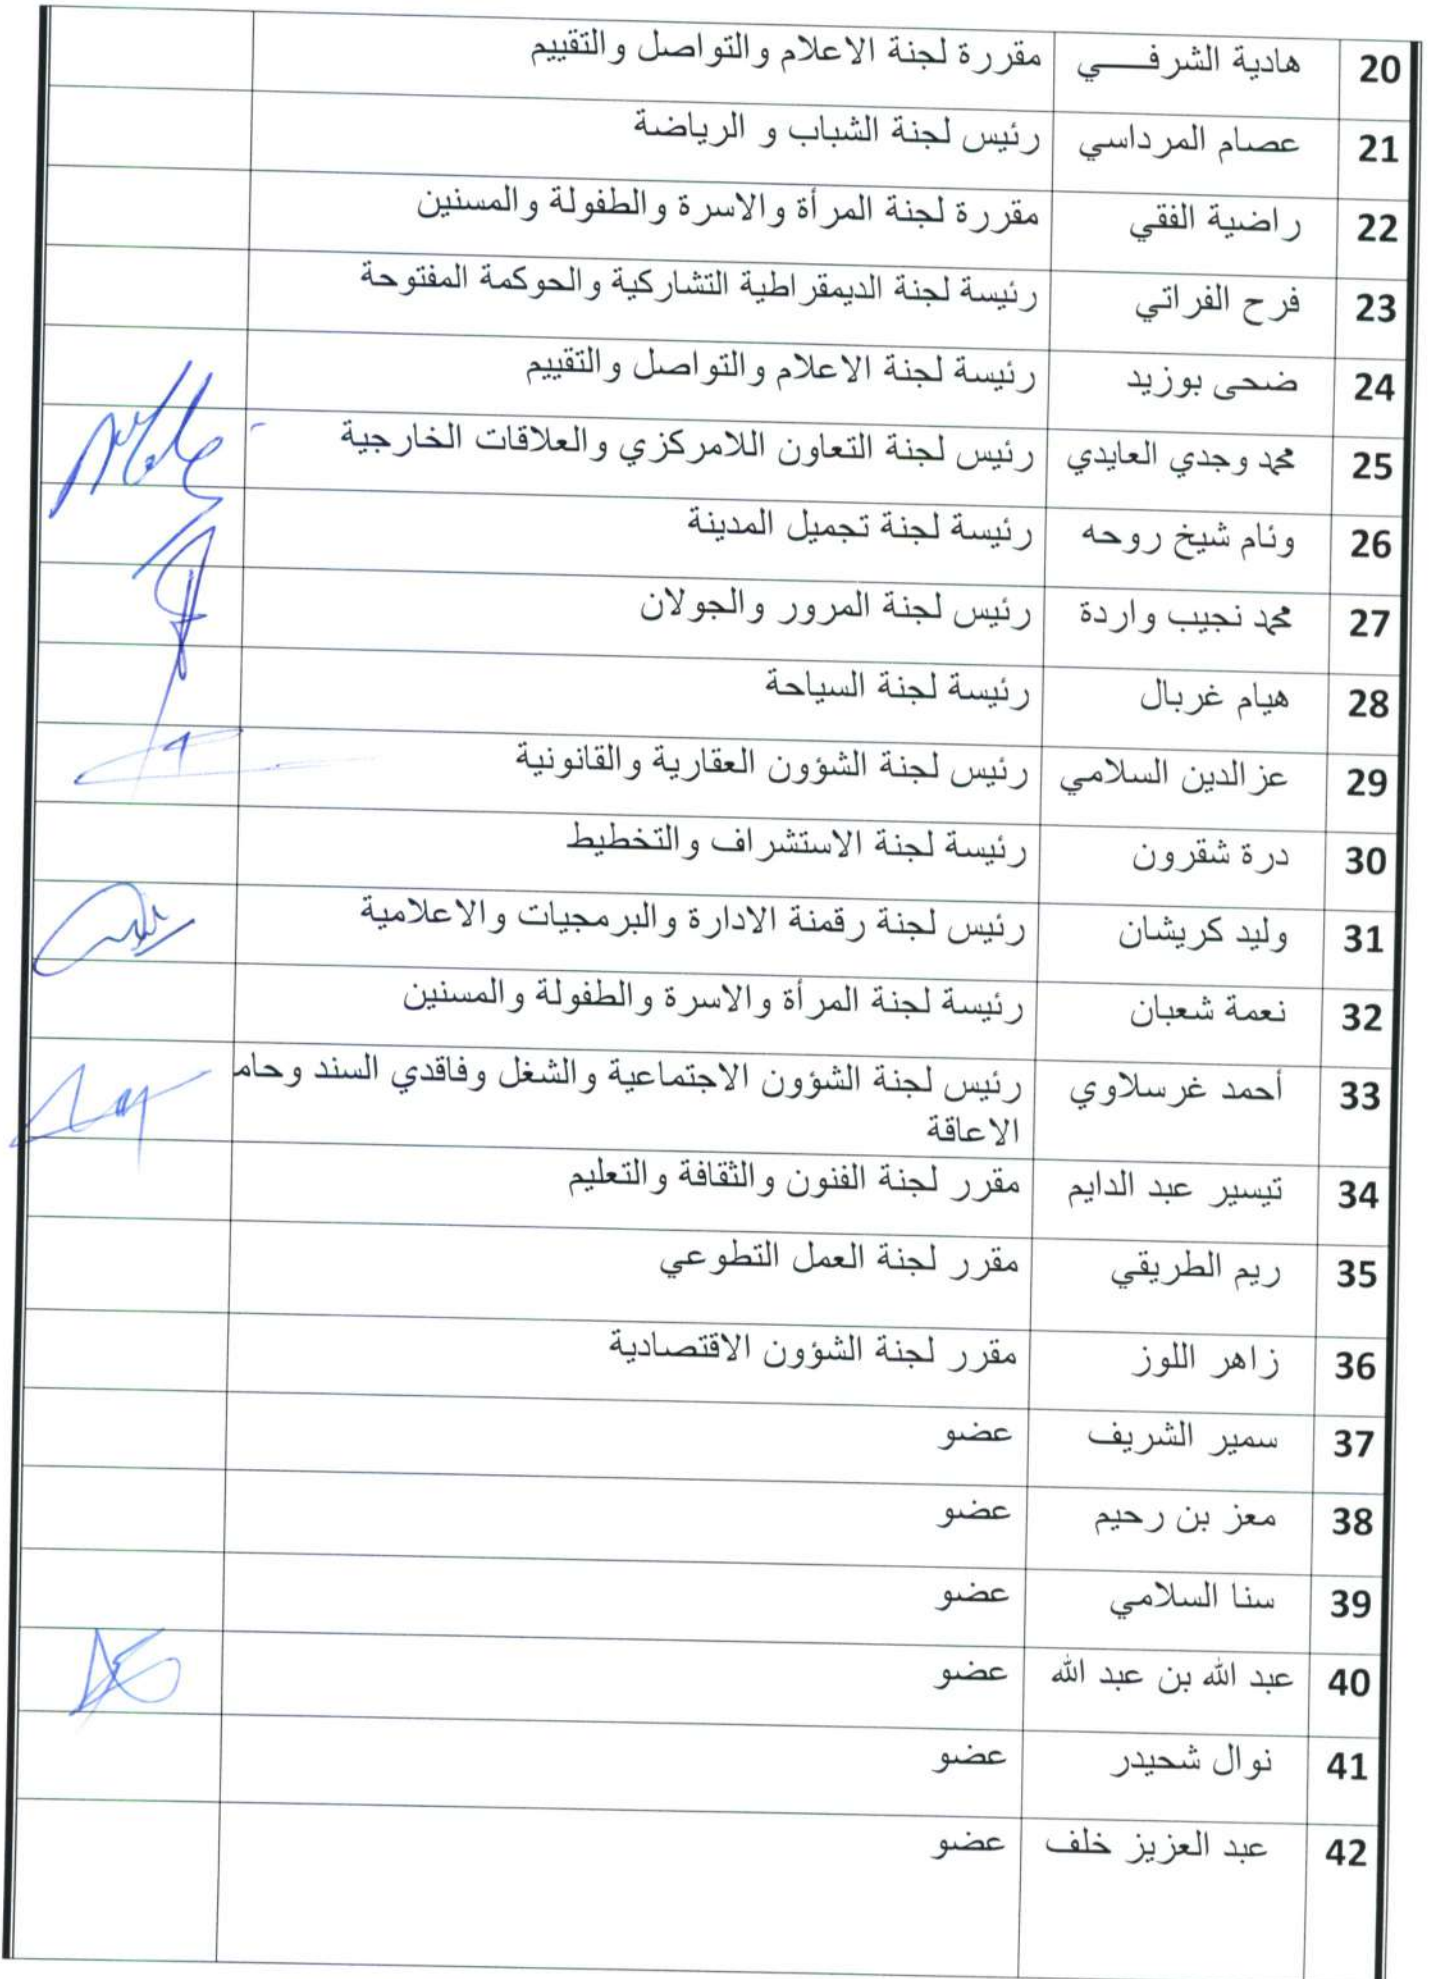 20 هادية الشرفـــــي مقررة لجنة الاعلام والتواصل والتقييم
21 عصام المرداسي رئيس لجنة الشباب و الرياضة
22 راضية الفقي مقررة لجنة المرأة والاسرة والطفولة والمسنين
23 فرح الفراتي رئيسة لجنة الديمقراطية التشاركية والحوكمة المفتوحة
24 ضحى بوزيد رئيسة لجنة الاعلام والتواصل والتقييم
25 محمد وجدي العايدي رئيس لجنة التعاون اللامركزي والعلاقات الخارجية
26 وئام شيخ روحه رئيسة لجنة تجميل المدينة
27 محمد نجيب واردة رئيس لجنة المرور والجولان
28 هيام غربال رئيسة لجنة السياحة
29 عزالدين السلامي رئيس لجنة الشؤون العقارية والقانونية
30 درة شقرون رئيسة لجنة الاستشراف والتخطيط
31 وليد كريشان رئيس لجنة رقمنة الادارة والبرمجيات والاعلامية
32 نعمة شعبان رئيسة لجنة المرأة والاسرة والطفولة والمسنين
33 أحمد غرسلاوي رئيس لجنة الشؤون الاجتماعية والشغل وفاقدي السند وحام
الاعاقة
34 تيسير عبد الدايم مقرر لجنة الفنون والثقافة والتعليم
35 ريم الطريقي مقرر لجنة العمل التطوعي
36 زاهر اللوز مقرر لجنة الشؤون الاقتصادية
37 سمير الشريف عضو
38 معز بن رحيم عضو
39 سنا السلامي عضو
40 عبد الله بن عبد الله عضو
41 نوال شحيدر عضو
42 عبد العزيز خلف عضو